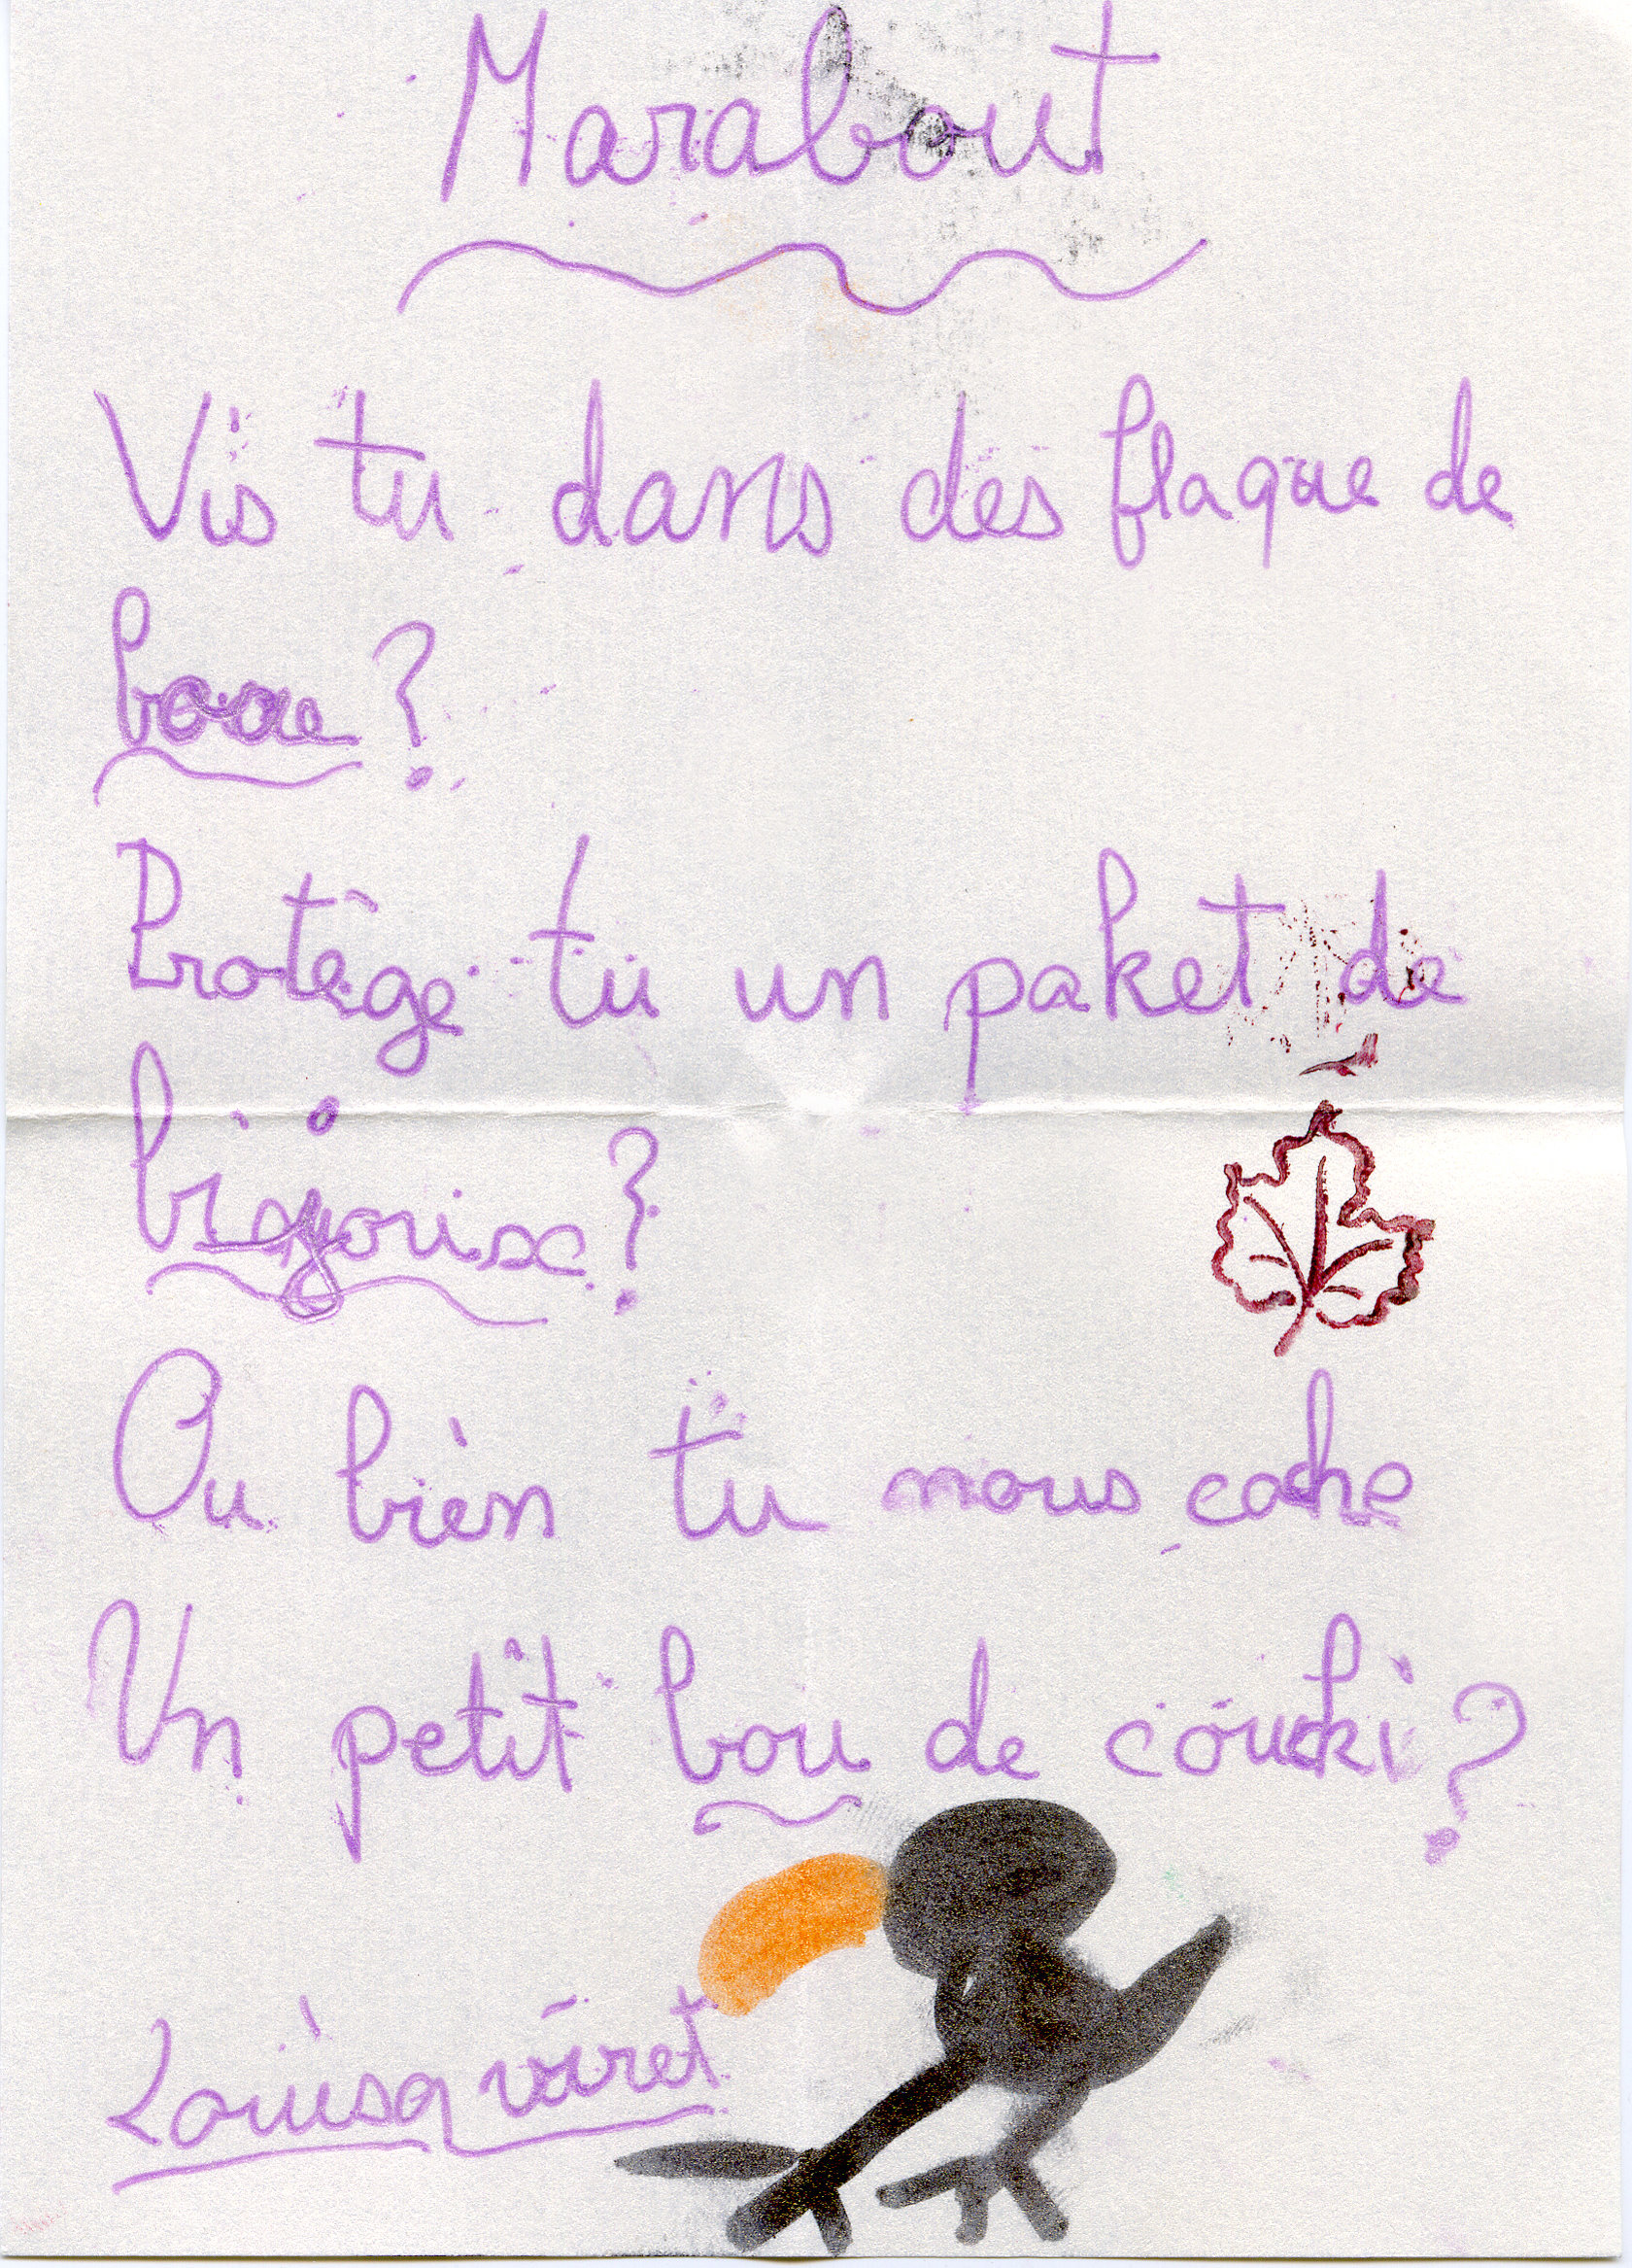 Marabout
Vis tu dans des flaque de
boue ?
Protège tu un paket de
bijoux ?
Ou bien tu nous cache
Un petit bou de couki ?
Louisa